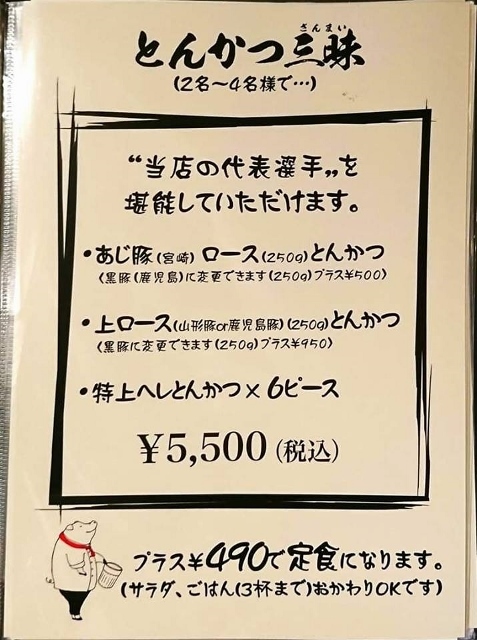 さんまい
とんかつ三昧
(2名〜4名様で…)
“当店の代表選手„を
堪能していただけます。
・あじ豚(宮崎) ロース(250g)とんかつ
〈黒豚(鹿児島)に変更できます(250g)プラス¥500〉
・上ロース(山形豚or鹿児島豚)(250g)とんかつ
〈黒豚に変更できます(250g)プラス¥950〉
・特上ヘレとんかつ×6ピース
¥5,500(税込)
プラス¥490で定食になります。
(サラダ、ごはん(3杯まで)おかわりOKです)